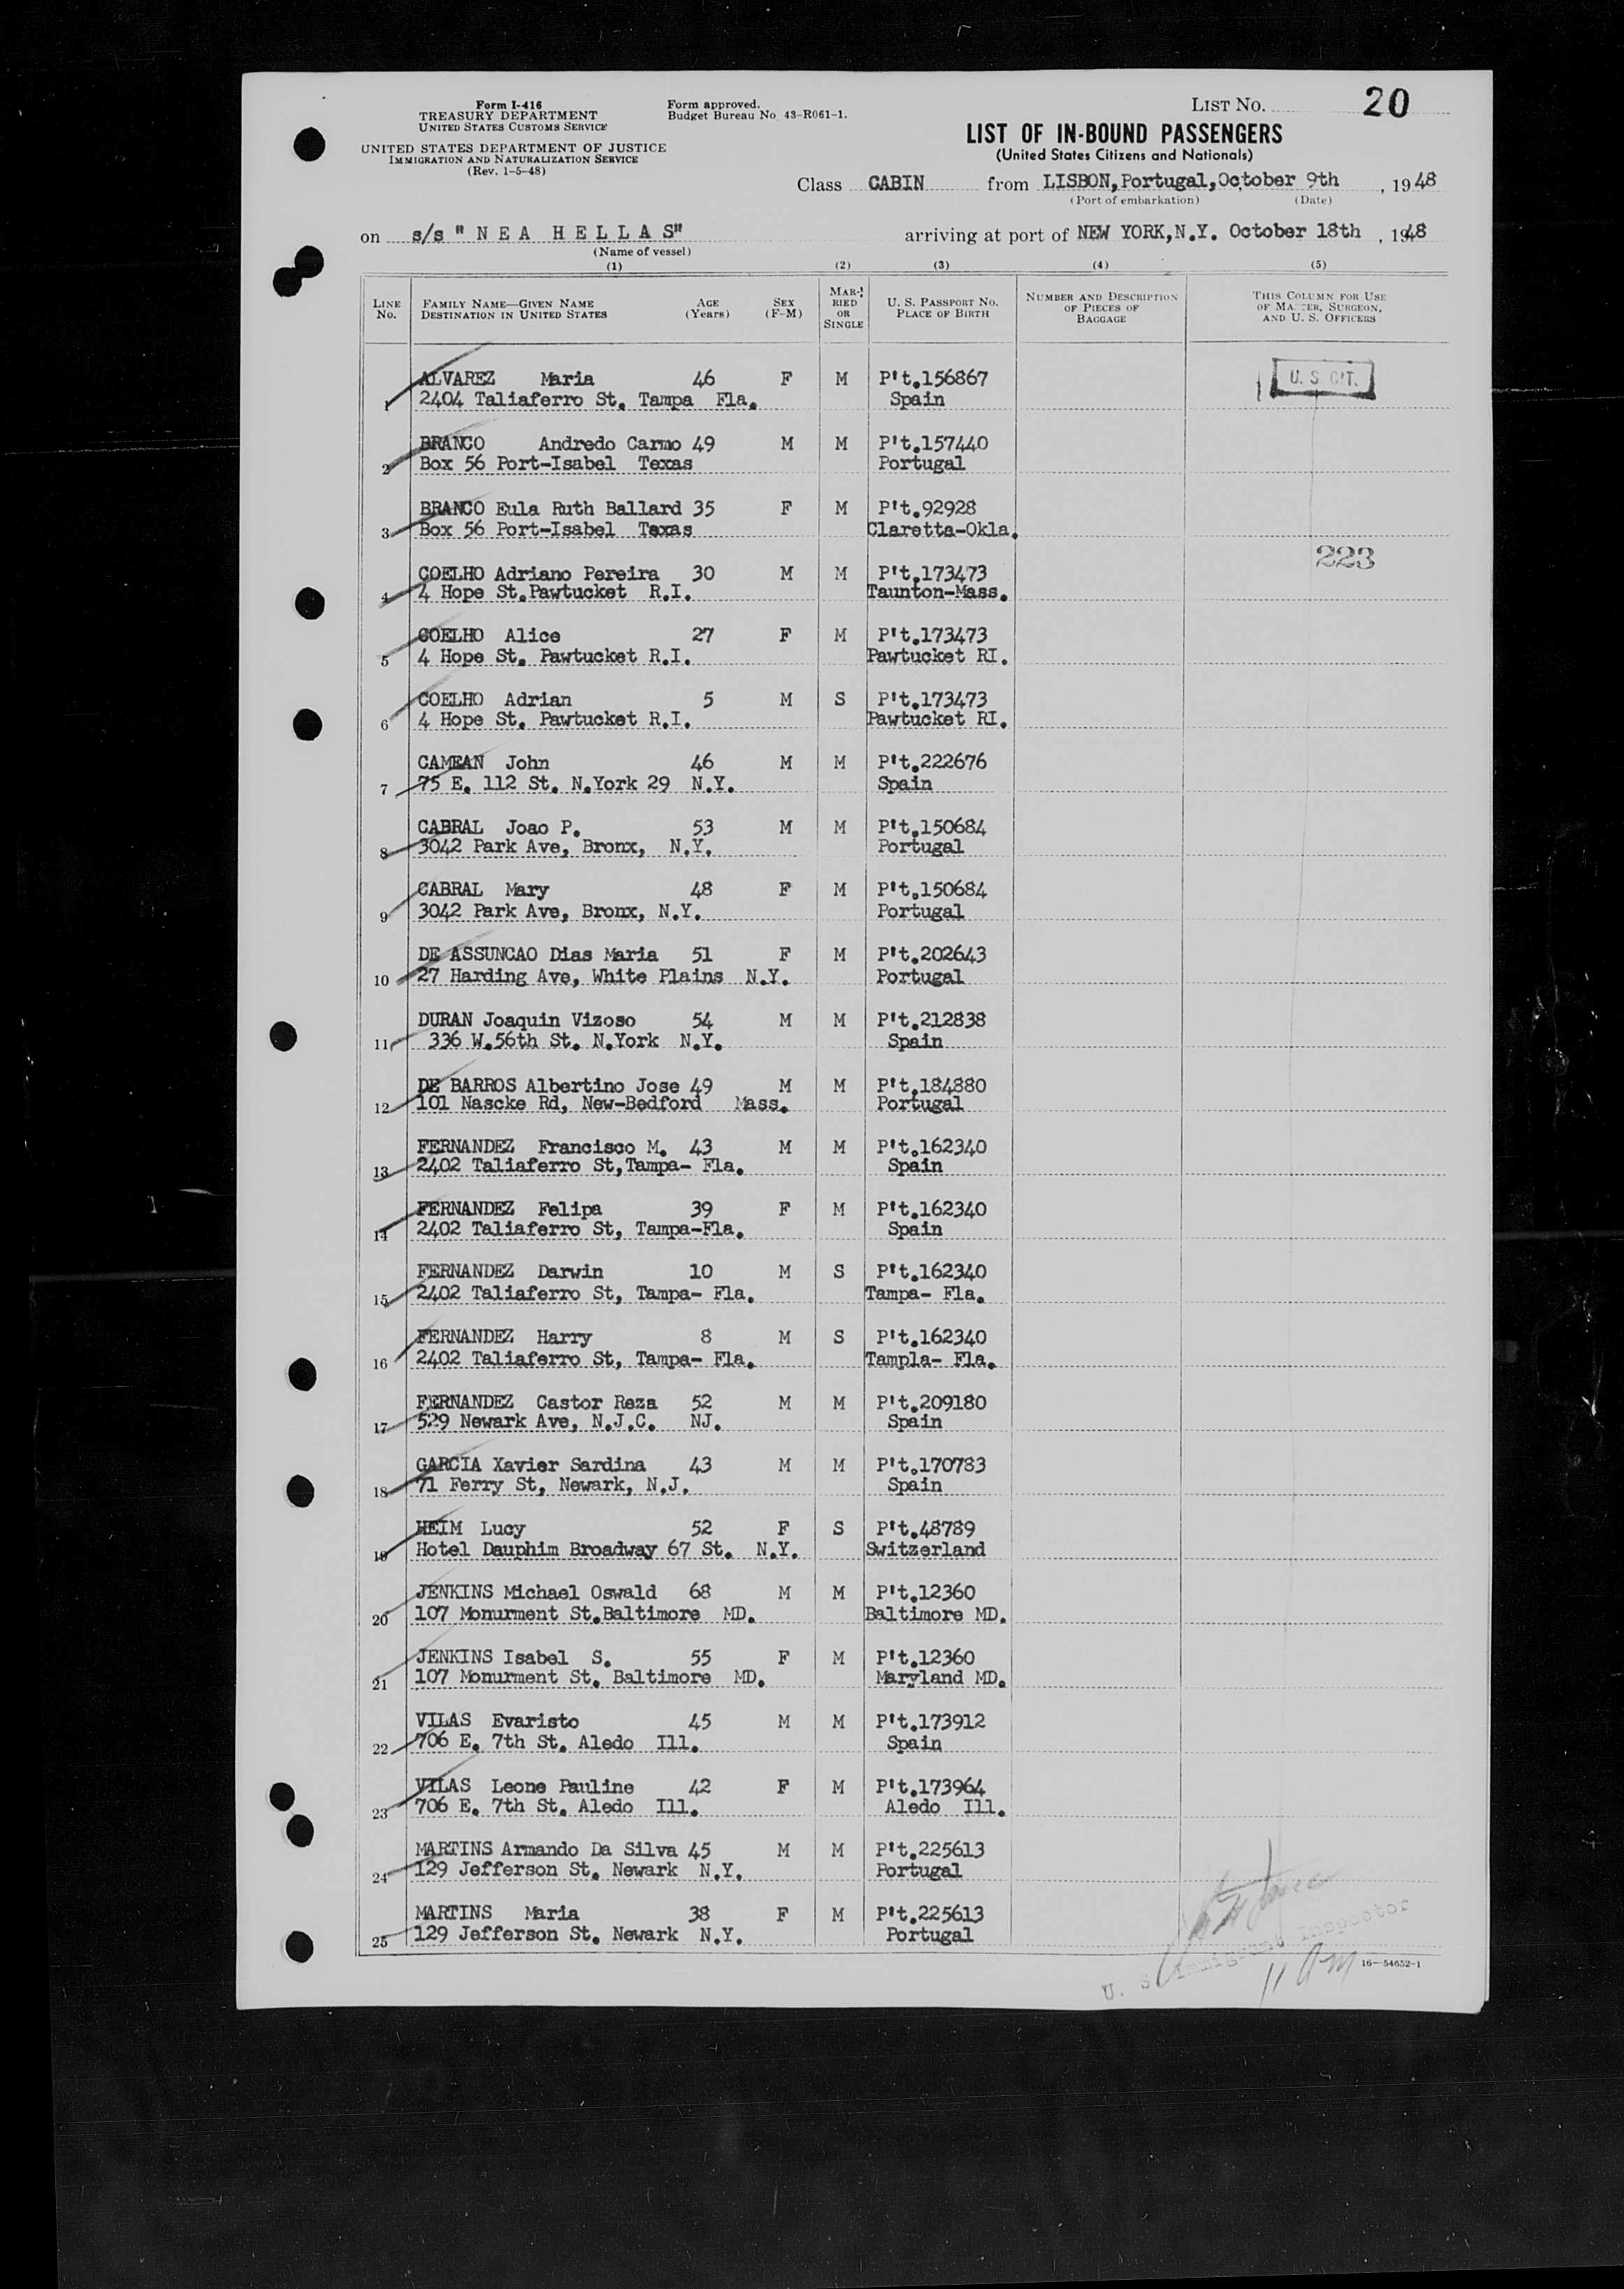 Form I-416
TREASURY DEPARTMENT
UNITED STATES CUSTOMS SERVICE
UNITED STATES DEPARTMENT OF JUSTICE
IMMIGRATION AND NATURALIZATION SERVICE
(Rev. 1-5-48)
Form approved.
Budget Bureau No. 43-R061-1.
LIST No. 20
LIST OF IN-BOUND PASSENGERS
(United States Citizens and Nationals)
Class CABIN from LISBON, Portugal, October 9th, 1948
(Port of embarkation) (Date)
on s/s "NEA HELLAS" arriving at port of NEW YORK, N.Y. October 18th, 1948
(Name of vessel)
(1) (2) (3) (4) (5)
LINE No. FAMILY NAME—GIVEN NAME DESTINATION IN UNITED STATES AGE (Years) SEX (F-M) MARRIED OR SINGLE U. S. PASSPORT No. PLACE OF BIRTH NUMBER AND DESCRIPTION OF PIECES OF BAGGAGE THIS COLUMN FOR USE OF MASTER, SURGEON, AND U. S. OFFICERS
ALVAREZ Maria 46 F M P't.156867 U. S CIT.
1 2404 Taliaferro St. Tampa Fla. Spain
BRANCO Andredo Carmo 49 M M P't.157440
2 Box 56 Port-Isabel Texas Portugal
BRANCO Eula Ruth Ballard 35 F M P't.92928
3 Box 56 Port-Isabel Texas Claretta-Okla.
223
COELHO Adriano Pereira 30 M M P't.173473
4 4 Hope St.Pawtucket R.I. Taunton-Mass.
COELHO Alice 27 F M P't.173473
5 4 Hope St. Pawtucket R.I. Pawtucket RI.
COELHO Adrian 5 M S P't.173473
6 4 Hope St. Pawtucket R.I. Pawtucket RI.
CAMEAN John 46 M M P't.222676
7 75 E. 112 St. N.York 29 N.Y. Spain
CABRAL Joao P. 53 M M P't.150684
8 3042 Park Ave, Bronx, N.Y. Portugal
CABRAL Mary 48 F M P't.150684
9 3042 Park Ave, Bronx, N.Y. Portugal
DE ASSUNCAO Dias Maria 51 F M P't.202643
10 27 Harding Ave, White Plains N.Y. Portugal
DURAN Joaquin Vizoso 54 M M P't.212838
11 336 W.56th St. N.York N.Y. Spain
DE BARROS Albertino Jose 49 M M P't.184880
12 101 Nascke Rd, New-Bedford Mass. Portugal
FERNANDEZ Francisco M. 43 M M P't.162340
13 2402 Taliaferro St,Tampa- Fla. Spain
FERNANDEZ Felipa 39 F M P't.162340
14 2402 Taliaferro St, Tampa-Fla. Spain
FERNANDEZ Darwin 10 M S P't.162340
15 2402 Taliaferro St, Tampa- Fla. Tampa- Fla.
FERNANDEZ Harry 8 M S P't.162340
16 2402 Taliaferro St, Tampa- Fla. Tampla- Fla.
FERNANDEZ Castor Reza 52 M M P't.209180
17 529 Newark Ave, N.J.C. NJ. Spain
GARCIA Xavier Sardina 43 M M P't.170783
18 71 Ferry St, Newark, N.J. Spain
HEIM Lucy 52 F S P't.48789
19 Hotel Dauphim Broadway 67 St. N.Y. Switzerland
JENKINS Michael Oswald 68 M M P't.12360
20 107 Monurment St.Baltimore MD. Baltimore MD.
JENKINS Isabel S. 55 F M P't.12360
21 107 Monurment St. Baltimore MD. Maryland MD.
VILAS Evaristo 45 M M P't.173912
22 706 E. 7th St. Aledo Ill. Spain
VILAS Leone Pauline 42 F M P't.173964
23 706 E. 7th St. Aledo Ill. Aledo Ill.
MARTINS Armando Da Silva 45 M M P't.225613
24 129 Jefferson St. Newark N.Y. Portugal
MARTINS Maria 38 F M P't.225613
25 129 Jefferson St. Newark N.Y. Portugal
U. S. Immigrant Inspector
11 am
16—54652-1